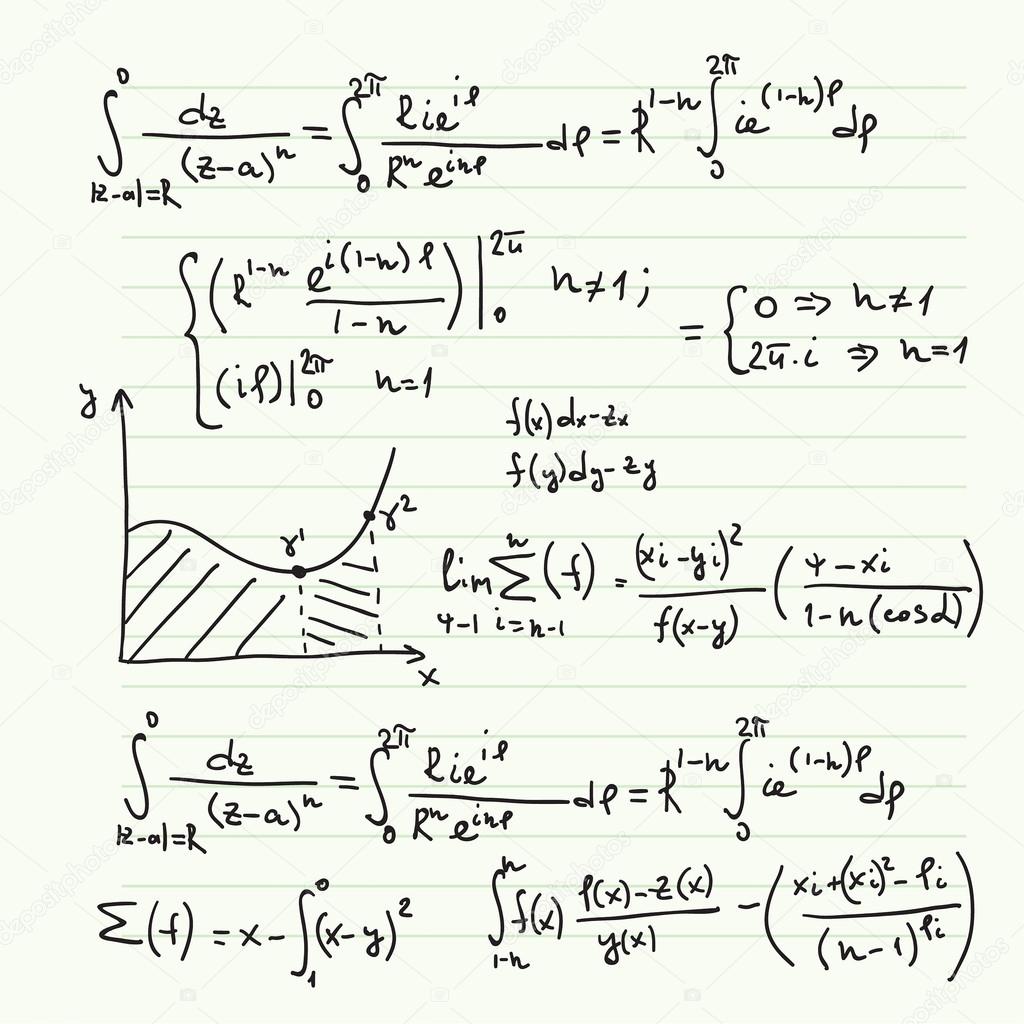 ∫_{|z-a|=R}^{0} dz/(z-a)^n = ∫_0^{2π} Rie^{iφ}/(R^n e^{inφ}) dφ = R^{1-n} ∫_0^{2π} ie^{(1-n)φ} dφ
{ (R^{1-n} e^{i(1-n)φ}/(1-n)) |_0^{2π} n≠1;
(iφ)|_0^{2π} n=1
= { 0 ⇒ n≠1
2π·i ⇒ n=1
y
f(x)dx-zx
f(y)dy-zy
γ^1
γ^2
x
lim_{4-1} Σ_{i=n-1}^{n} (f) = (xi-yi)^2/f(x-y) (4-xi/(1-n(cosα)))
∫_{|z-a|=R}^{0} dz/(z-a)^n = ∫_0^{2π} Rie^{iφ}/(R^n e^{inφ}) dφ = R^{1-n} ∫_0^{2π} ie^{(1-n)φ} dφ
Σ(f) = x-∫_1^0 (x-y)^2
∫_{1-n}^{n} f(x) (φ(x)-z(x))/y(x) - ((xi+(xi)^2-φi)/(n-1)^{φi})
depositphotos